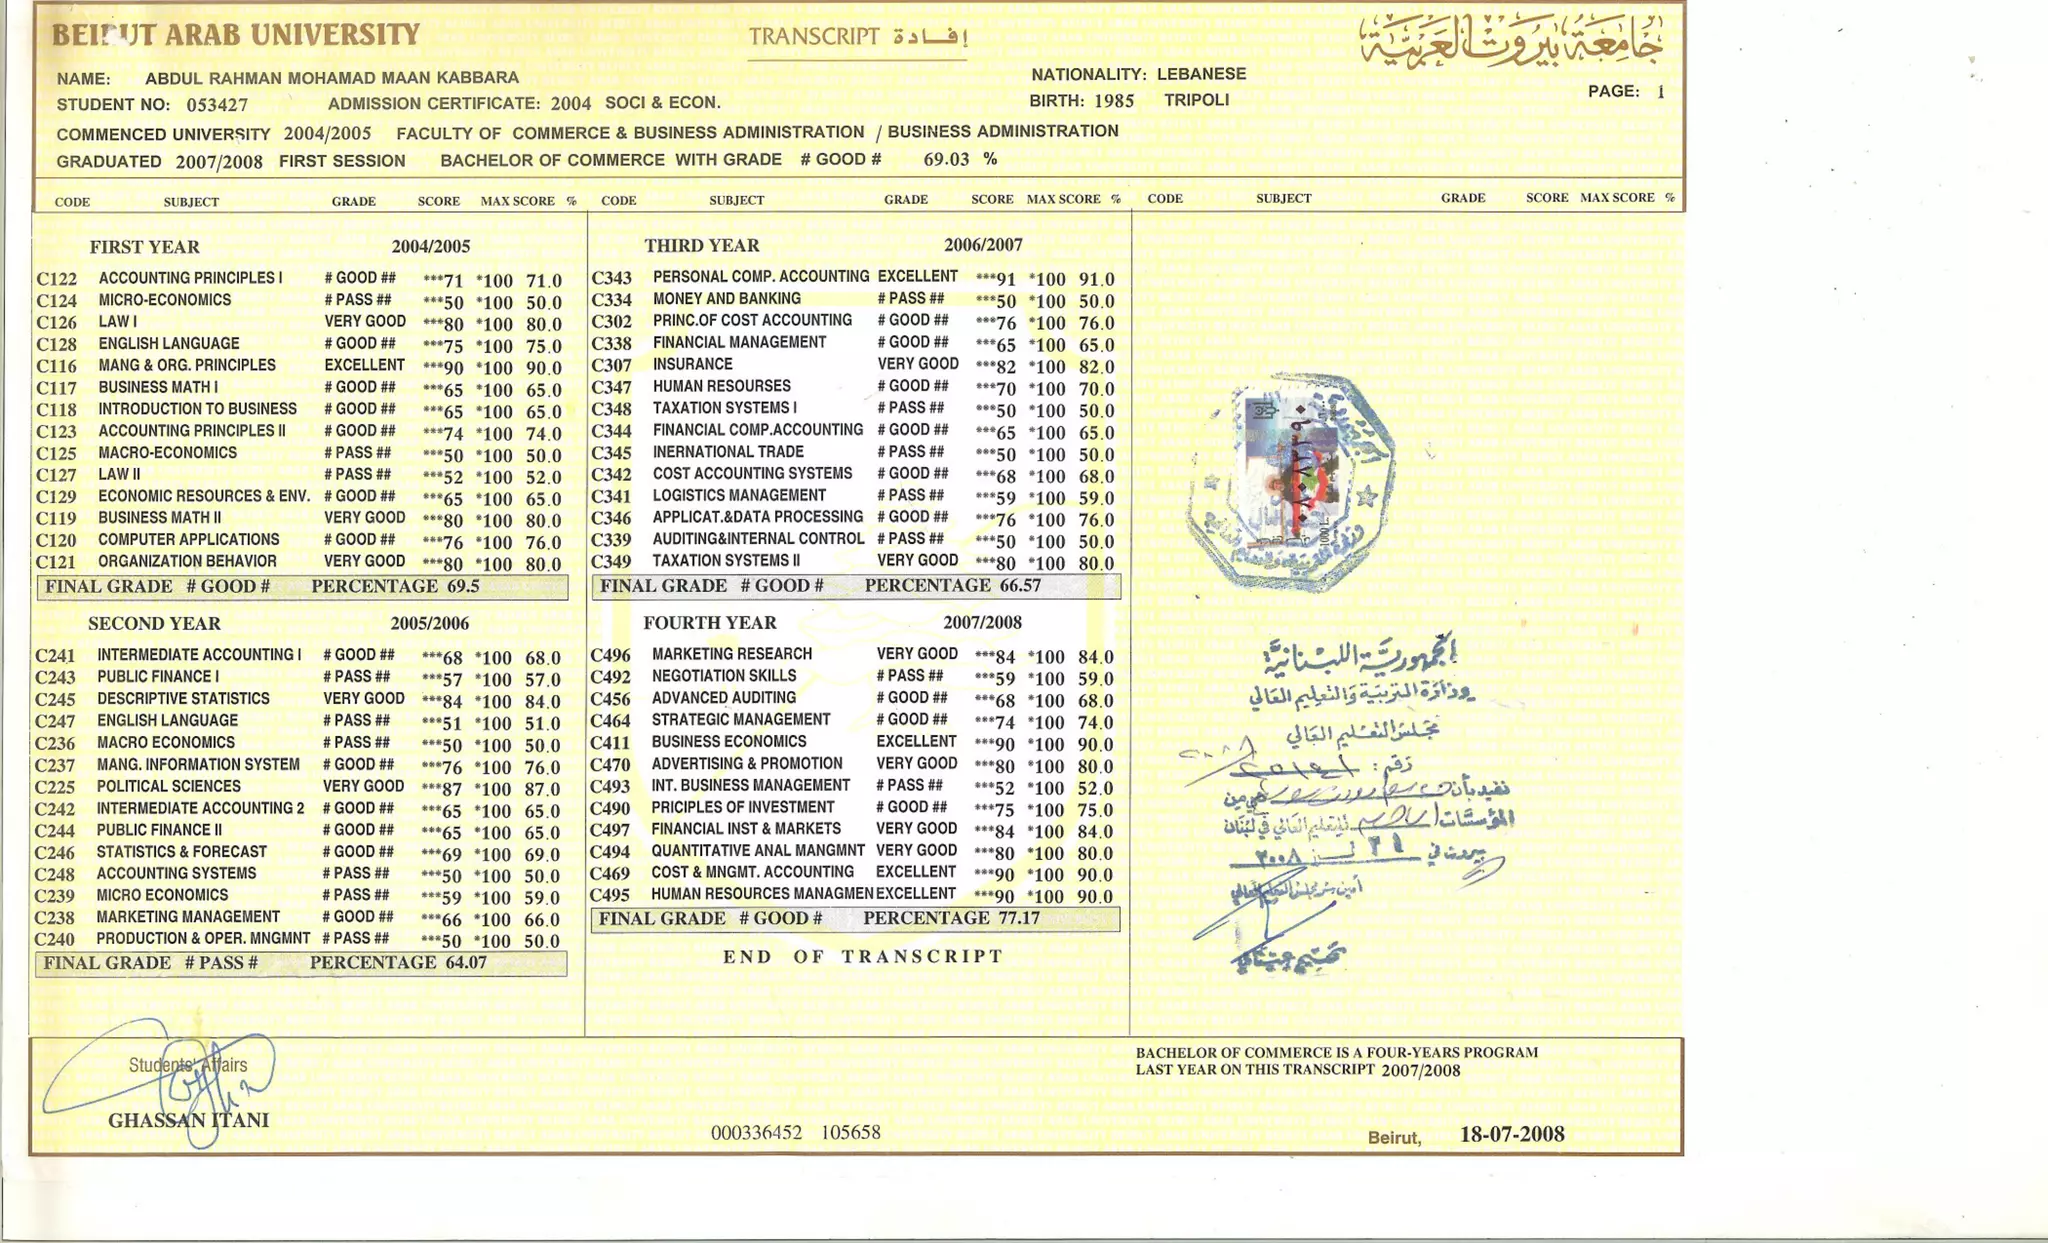 BEIRUT ARAB UNIVERSITY
TRANSCRIPT إفادة
جامعة بيروت العربية
NAME: ABDUL RAHMAN MOHAMAD MAAN KABBARA
NATIONALITY: LEBANESE
STUDENT NO: 053427 ADMISSION CERTIFICATE: 2004 SOCI & ECON.
BIRTH: 1985 TRIPOLI
PAGE: 1
COMMENCED UNIVERSITY 2004/2005 FACULTY OF COMMERCE & BUSINESS ADMINISTRATION / BUSINESS ADMINISTRATION
GRADUATED 2007/2008 FIRST SESSION BACHELOR OF COMMERCE WITH GRADE # GOOD # 69.03 %
CODE SUBJECT GRADE SCORE MAX SCORE %
FIRST YEAR 2004/2005
C122 ACCOUNTING PRINCIPLES I # GOOD ## ***71 *100 71.0
C124 MICRO-ECONOMICS # PASS ## ***50 *100 50.0
C126 LAW I VERY GOOD ***80 *100 80.0
C128 ENGLISH LANGUAGE # GOOD ## ***75 *100 75.0
C116 MANG & ORG. PRINCIPLES EXCELLENT ***90 *100 90.0
C117 BUSINESS MATH I # GOOD ## ***65 *100 65.0
C118 INTRODUCTION TO BUSINESS # GOOD ## ***65 *100 65.0
C123 ACCOUNTING PRINCIPLES II # GOOD ## ***74 *100 74.0
C125 MACRO-ECONOMICS # PASS ## ***50 *100 50.0
C127 LAW II # PASS ## ***52 *100 52.0
C129 ECONOMIC RESOURCES & ENV. # GOOD ## ***65 *100 65.0
C119 BUSINESS MATH II VERY GOOD ***80 *100 80.0
C120 COMPUTER APPLICATIONS # GOOD ## ***76 *100 76.0
C121 ORGANIZATION BEHAVIOR VERY GOOD ***80 *100 80.0
FINAL GRADE # GOOD # PERCENTAGE 69.5
SECOND YEAR 2005/2006
C241 INTERMEDIATE ACCOUNTING I # GOOD ## ***68 *100 68.0
C243 PUBLIC FINANCE I # PASS ## ***57 *100 57.0
C245 DESCRIPTIVE STATISTICS VERY GOOD ***84 *100 84.0
C247 ENGLISH LANGUAGE # PASS ## ***51 *100 51.0
C236 MACRO ECONOMICS # PASS ## ***50 *100 50.0
C237 MANG. INFORMATION SYSTEM # GOOD ## ***76 *100 76.0
C225 POLITICAL SCIENCES VERY GOOD ***87 *100 87.0
C242 INTERMEDIATE ACCOUNTING 2 # GOOD ## ***65 *100 65.0
C244 PUBLIC FINANCE II # GOOD ## ***65 *100 65.0
C246 STATISTICS & FORECAST # GOOD ## ***69 *100 69.0
C248 ACCOUNTING SYSTEMS # PASS ## ***50 *100 50.0
C239 MICRO ECONOMICS # PASS ## ***59 *100 59.0
C238 MARKETING MANAGEMENT # GOOD ## ***66 *100 66.0
C240 PRODUCTION & OPER. MNGMNT # PASS ## ***50 *100 50.0
FINAL GRADE # PASS # PERCENTAGE 64.07
CODE SUBJECT GRADE SCORE MAX SCORE %
THIRD YEAR 2006/2007
C343 PERSONAL COMP. ACCOUNTING EXCELLENT ***91 *100 91.0
C334 MONEY AND BANKING # PASS ## ***50 *100 50.0
C302 PRINC.OF COST ACCOUNTING # GOOD ## ***76 *100 76.0
C338 FINANCIAL MANAGEMENT # GOOD ## ***65 *100 65.0
C307 INSURANCE VERY GOOD ***82 *100 82.0
C347 HUMAN RESOURSES # GOOD ## ***70 *100 70.0
C348 TAXATION SYSTEMS I # PASS ## ***50 *100 50.0
C344 FINANCIAL COMP.ACCOUNTING # GOOD ## ***65 *100 65.0
C345 INERNATIONAL TRADE # PASS ## ***50 *100 50.0
C342 COST ACCOUNTING SYSTEMS # GOOD ## ***68 *100 68.0
C341 LOGISTICS MANAGEMENT # PASS ## ***59 *100 59.0
C346 APPLICAT.&DATA PROCESSING # GOOD ## ***76 *100 76.0
C339 AUDITING&INTERNAL CONTROL # PASS ## ***50 *100 50.0
C349 TAXATION SYSTEMS II VERY GOOD ***80 *100 80.0
FINAL GRADE # GOOD # PERCENTAGE 66.57
FOURTH YEAR 2007/2008
C496 MARKETING RESEARCH VERY GOOD ***84 *100 84.0
C492 NEGOTIATION SKILLS # PASS ## ***59 *100 59.0
C456 ADVANCED AUDITING # GOOD ## ***68 *100 68.0
C464 STRATEGIC MANAGEMENT # GOOD ## ***74 *100 74.0
C411 BUSINESS ECONOMICS EXCELLENT ***90 *100 90.0
C470 ADVERTISING & PROMOTION VERY GOOD ***80 *100 80.0
C493 INT. BUSINESS MANAGEMENT # PASS ## ***52 *100 52.0
C490 PRICIPLES OF INVESTMENT # GOOD ## ***75 *100 75.0
C497 FINANCIAL INST & MARKETS VERY GOOD ***84 *100 84.0
C494 QUANTITATIVE ANAL MANGMNT VERY GOOD ***80 *100 80.0
C469 COST & MNGMT. ACCOUNTING EXCELLENT ***90 *100 90.0
C495 HUMAN RESOURCES MANAGMEN EXCELLENT ***90 *100 90.0
FINAL GRADE # GOOD # PERCENTAGE 77.17
END OF TRANSCRIPT
CODE SUBJECT GRADE SCORE MAX SCORE %
الجمهورية اللبنانية
وزارة التربية والتعليم العالي
مجلس التعليم العالي
رقم:
نفيد بأن هي من
المؤسسات للتعليم العالي في لبنان
بيروت في ٢٠٠٨
أمين سر مجلس التعليم العالي
Students' Affairs
GHASSAN ITANI
000336452 105658
BACHELOR OF COMMERCE IS A FOUR-YEARS PROGRAM
LAST YEAR ON THIS TRANSCRIPT 2007/2008
Beirut, 18-07-2008